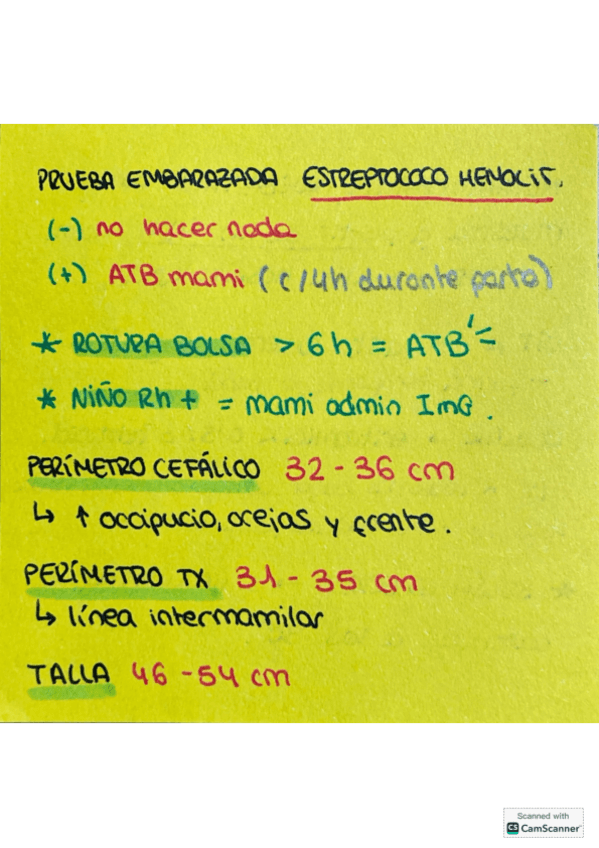 PRUEBA EMBARAZADA ESTREPTOCOCO HEMOLIT.
(-) no hacer nada
(+) ATB mami (c/4h durante parto)
* ROTURA BOLSA > 6h = ATB
* NIÑO Rh + = mami admin ImG.
PERÍMETRO CEFÁLICO 32 - 36 cm
↳ ↑ occipucio, orejas y frente.
PERÍMETRO TX 31 - 35 cm
↳ línea intermamilar
TALLA 46 - 54 cm
Scanned with
CS CamScanner